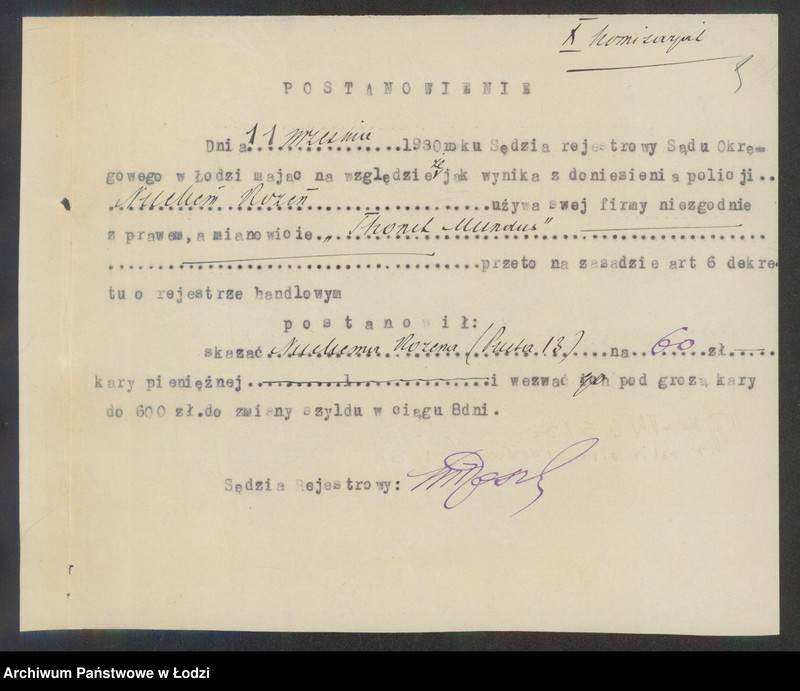 X Komisarjat
POSTANOWIENIE
Dnia 11 września 1930 roku Sędzia rejestrowy Sądu Okrę-
gowego w Łodzi mając na względzie, że jak wynika z doniesienia policji..
Nuchem Rozen używa swej firmy niezgodnie
z prawem, a mianowicie „Thonet Mundus"
przeto na zasadzie art 6 dekre-
tu o rejestrze handlowym
postanowił:
skazać Nuchema Rozena (Pusta 13) na 60 zł
kary pieniężnej i wezwać go pod grozą kary
do 600 zł.do zmiany szyldu w ciągu 8dni.
Sędzia Rejestrowy:
Archiwum Państwowe w Łodzi